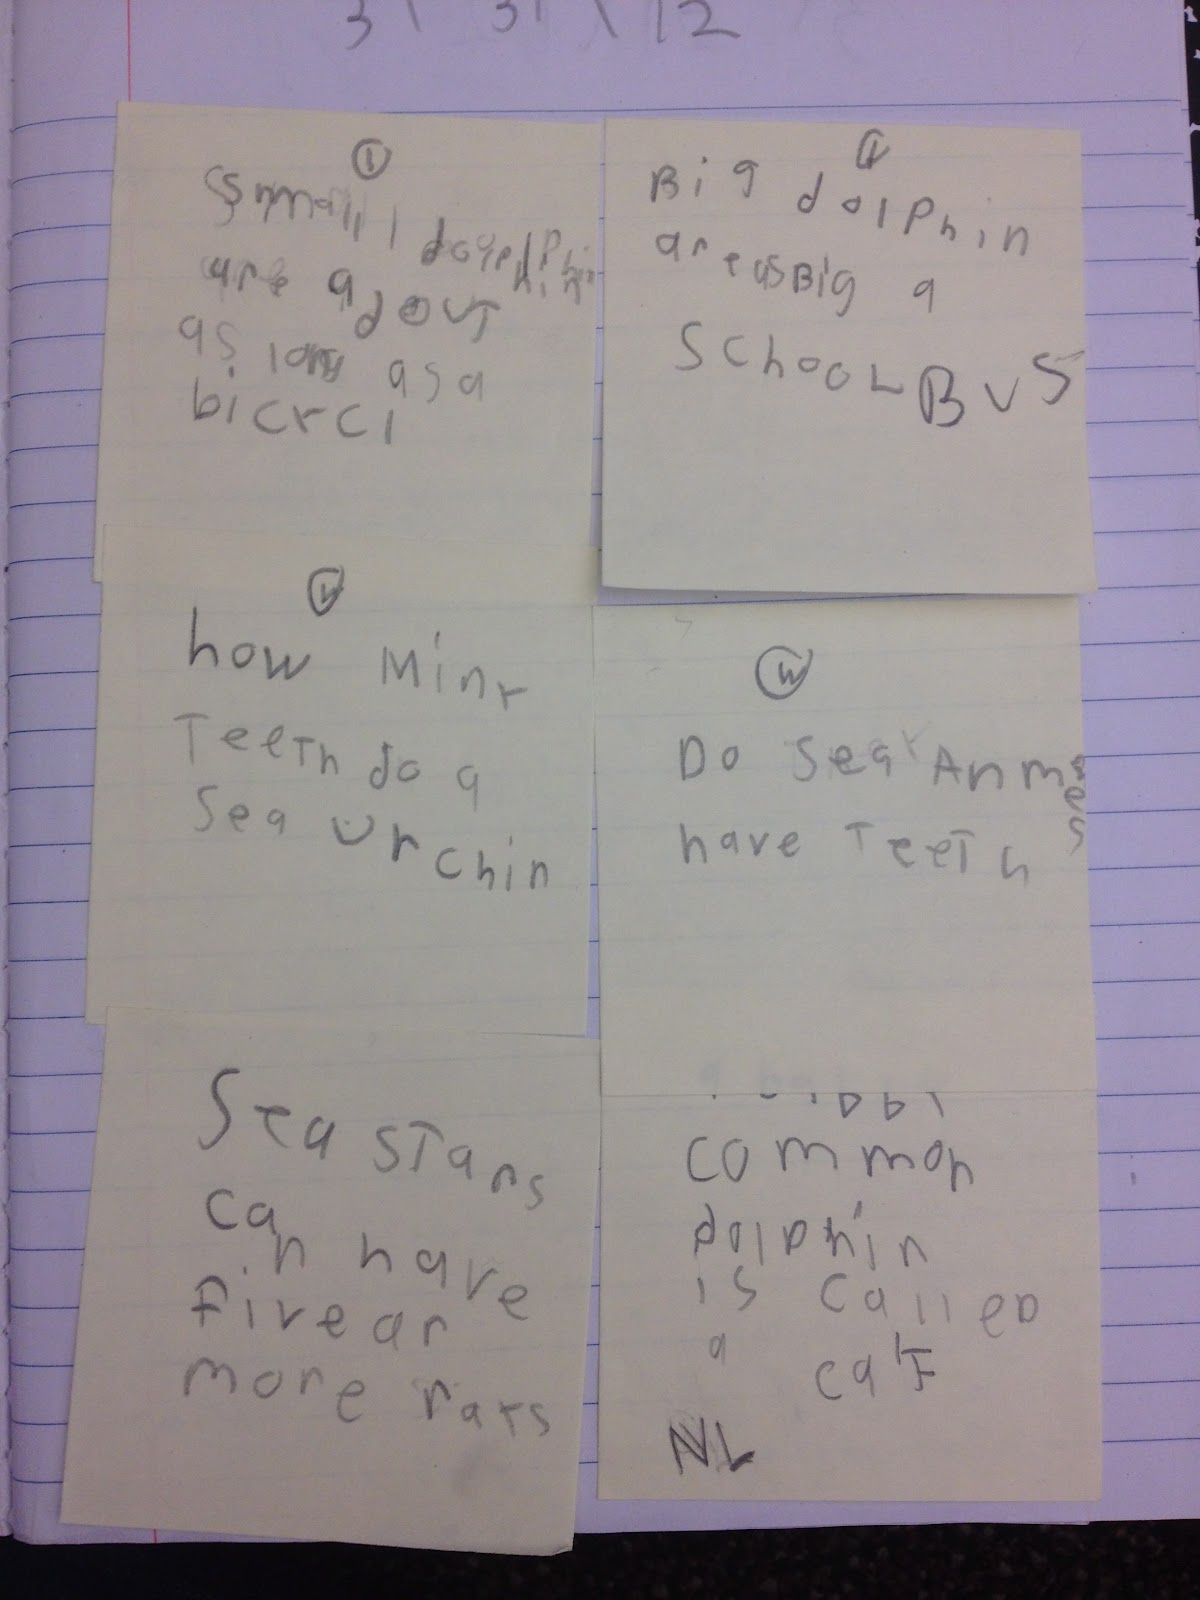 3 \ 31 \ 12
Small dolphin
are adout
as long as a
bicrcl
Big dolphin
are as Big a
SchooL BuS
W
how Minr
Teeth do a
Sea urchin
W
Do Sea Anmes
have TeeTh
Sea STars
can have
Five ar
more rars
common
dolphin
is calleD
a calF
NL